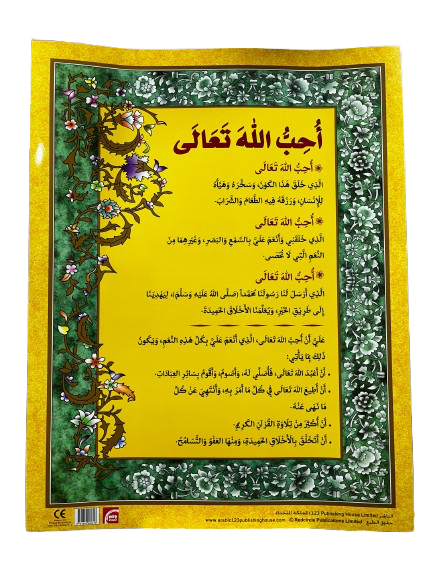 أُحِبُّ اللهَ تَعَالَى
✺ أُحِبُّ اللهَ تَعَالَى
الَّذِي خَلَقَ هَذَا الكَوْنَ، وَسَخَّرَهُ وَهَيَّأَهُ
لِلْإِنْسَانِ، وَرَزَقَهُ فِيهِ الطَّعَامَ وَالشَّرَابَ.
✺ أُحِبُّ اللهَ تَعَالَى
الَّذِي خَلَقَنِي وَأَنْعَمَ عَلَيَّ بِالسَّمْعِ وَالبَصَرِ، وَغَيْرِهِمَا مِنَ
النِّعَمِ الَّتِي لَا تُحْصَى.
✺ أُحِبُّ اللهَ تَعَالَى
الَّذِي أَرْسَلَ لَنَا رَسُولَنَا مُحَمَّداً (صَلَّى اللهُ عَلَيْهِ وَسَلَّمَ)؛ لِيَهْدِيَنَا
إِلَى طَرِيقِ الخَيْرِ، وَيُعَلِّمَنَا الأَخْلَاقَ الحَمِيدَةَ.
عَلَيَّ أَنْ أُحِبَّ اللهَ تَعَالَى، الَّذِي أَنْعَمَ عَلَيَّ بِكُلِّ هَذِهِ النِّعَمِ، وَيَكُونُ
ذَلِكَ بِمَا يَأْتِي:
• أَنْ أَعْبُدَ اللهَ تَعَالَى، فَأُصَلِّي لَهُ، وَأَصُومُ، وَأَقُومُ بِسَائِرِ العِبَادَاتِ.
• أَنْ أُطِيعَ اللهَ تَعَالَى فِي كُلِّ مَا أَمَرَ بِهِ، وَأَنْتَهِيَ عَنْ كُلِّ
مَا نَهَى عَنْهُ.
• أَنْ أُكْثِرَ مِنْ تِلَاوَةِ القُرْآنِ الكَرِيمِ.
• أَنْ أَتَخَلَّقَ بِالأَخْلَاقِ الحَمِيدَةِ، وَمِنْهَا العَفْوُ وَالتَّسَامُحُ.
CE
الناشر 123 Publishing House Limited المملكة المتحدة
حقوق الطبع © Redcircle Publications Limited www.arabic123publishinghouse.com